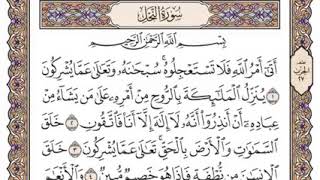 سُورَةُ النَّحۡلِ
بِسۡمِ ٱللَّهِ ٱلرَّحۡمَٰنِ ٱلرَّحِيمِ
أَتَىٰٓ أَمۡرُ ٱللَّهِ فَلَا تَسۡتَعۡجِلُوهُۚ سُبۡحَٰنَهُۥ وَتَعَٰلَىٰ عَمَّا يُشۡرِكُونَ
١ يُنَزِّلُ ٱلۡمَلَٰٓئِكَةَ بِٱلرُّوحِ مِنۡ أَمۡرِهِۦ عَلَىٰ مَن يَشَآءُ مِنۡ
عِبَادِهِۦٓ أَنۡ أَنذِرُوٓاْ أَنَّهُۥ لَآ إِلَٰهَ إِلَّآ أَنَا۠ فَٱتَّقُونِ ٢ خَلَقَ
ٱلسَّمَٰوَٰتِ وَٱلۡأَرۡضَ بِٱلۡحَقِّۚ تَعَٰلَىٰ عَمَّا يُشۡرِكُونَ ٣ خَلَقَ
ٱلۡإِنسَٰنَ مِن نُّطۡفَةٖ فَإِذَا هُوَ خَصِيمٞ مُّبِينٞ ٤ وَٱلۡأَنۡعَٰمَ